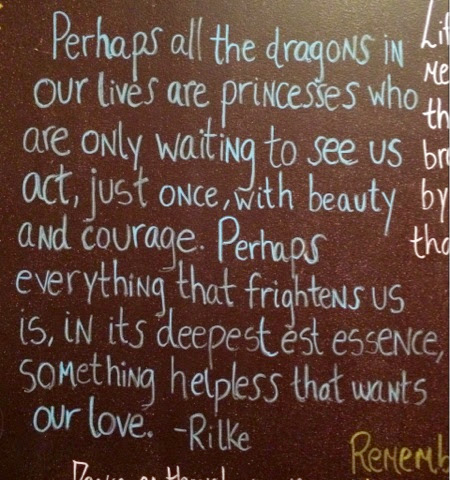 Perhaps all the dragons in
our lives are princesses who
are only waiting to see us
act, just once, with beauty
and courage. Perhaps
everything that frightens us
is, in its deepest est essence,
something helpless that wants
our love. -Rilke